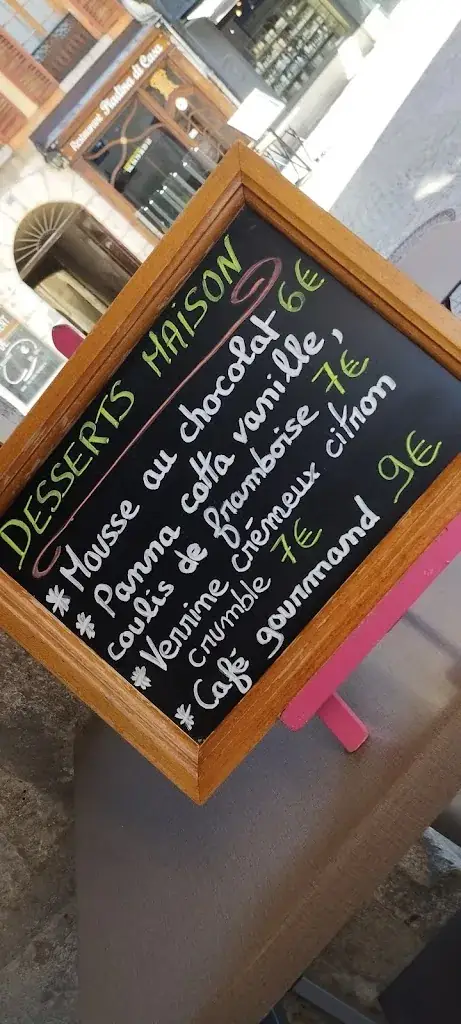 Restaurant Piadina di Casa
DESSERTS MAISON
* Mousse au chocolat 6€
* Panna cotta vanille,
coulis de framboise 7€
* Verrine crémeux citron
crumble 7€
* Café gourmand 9€